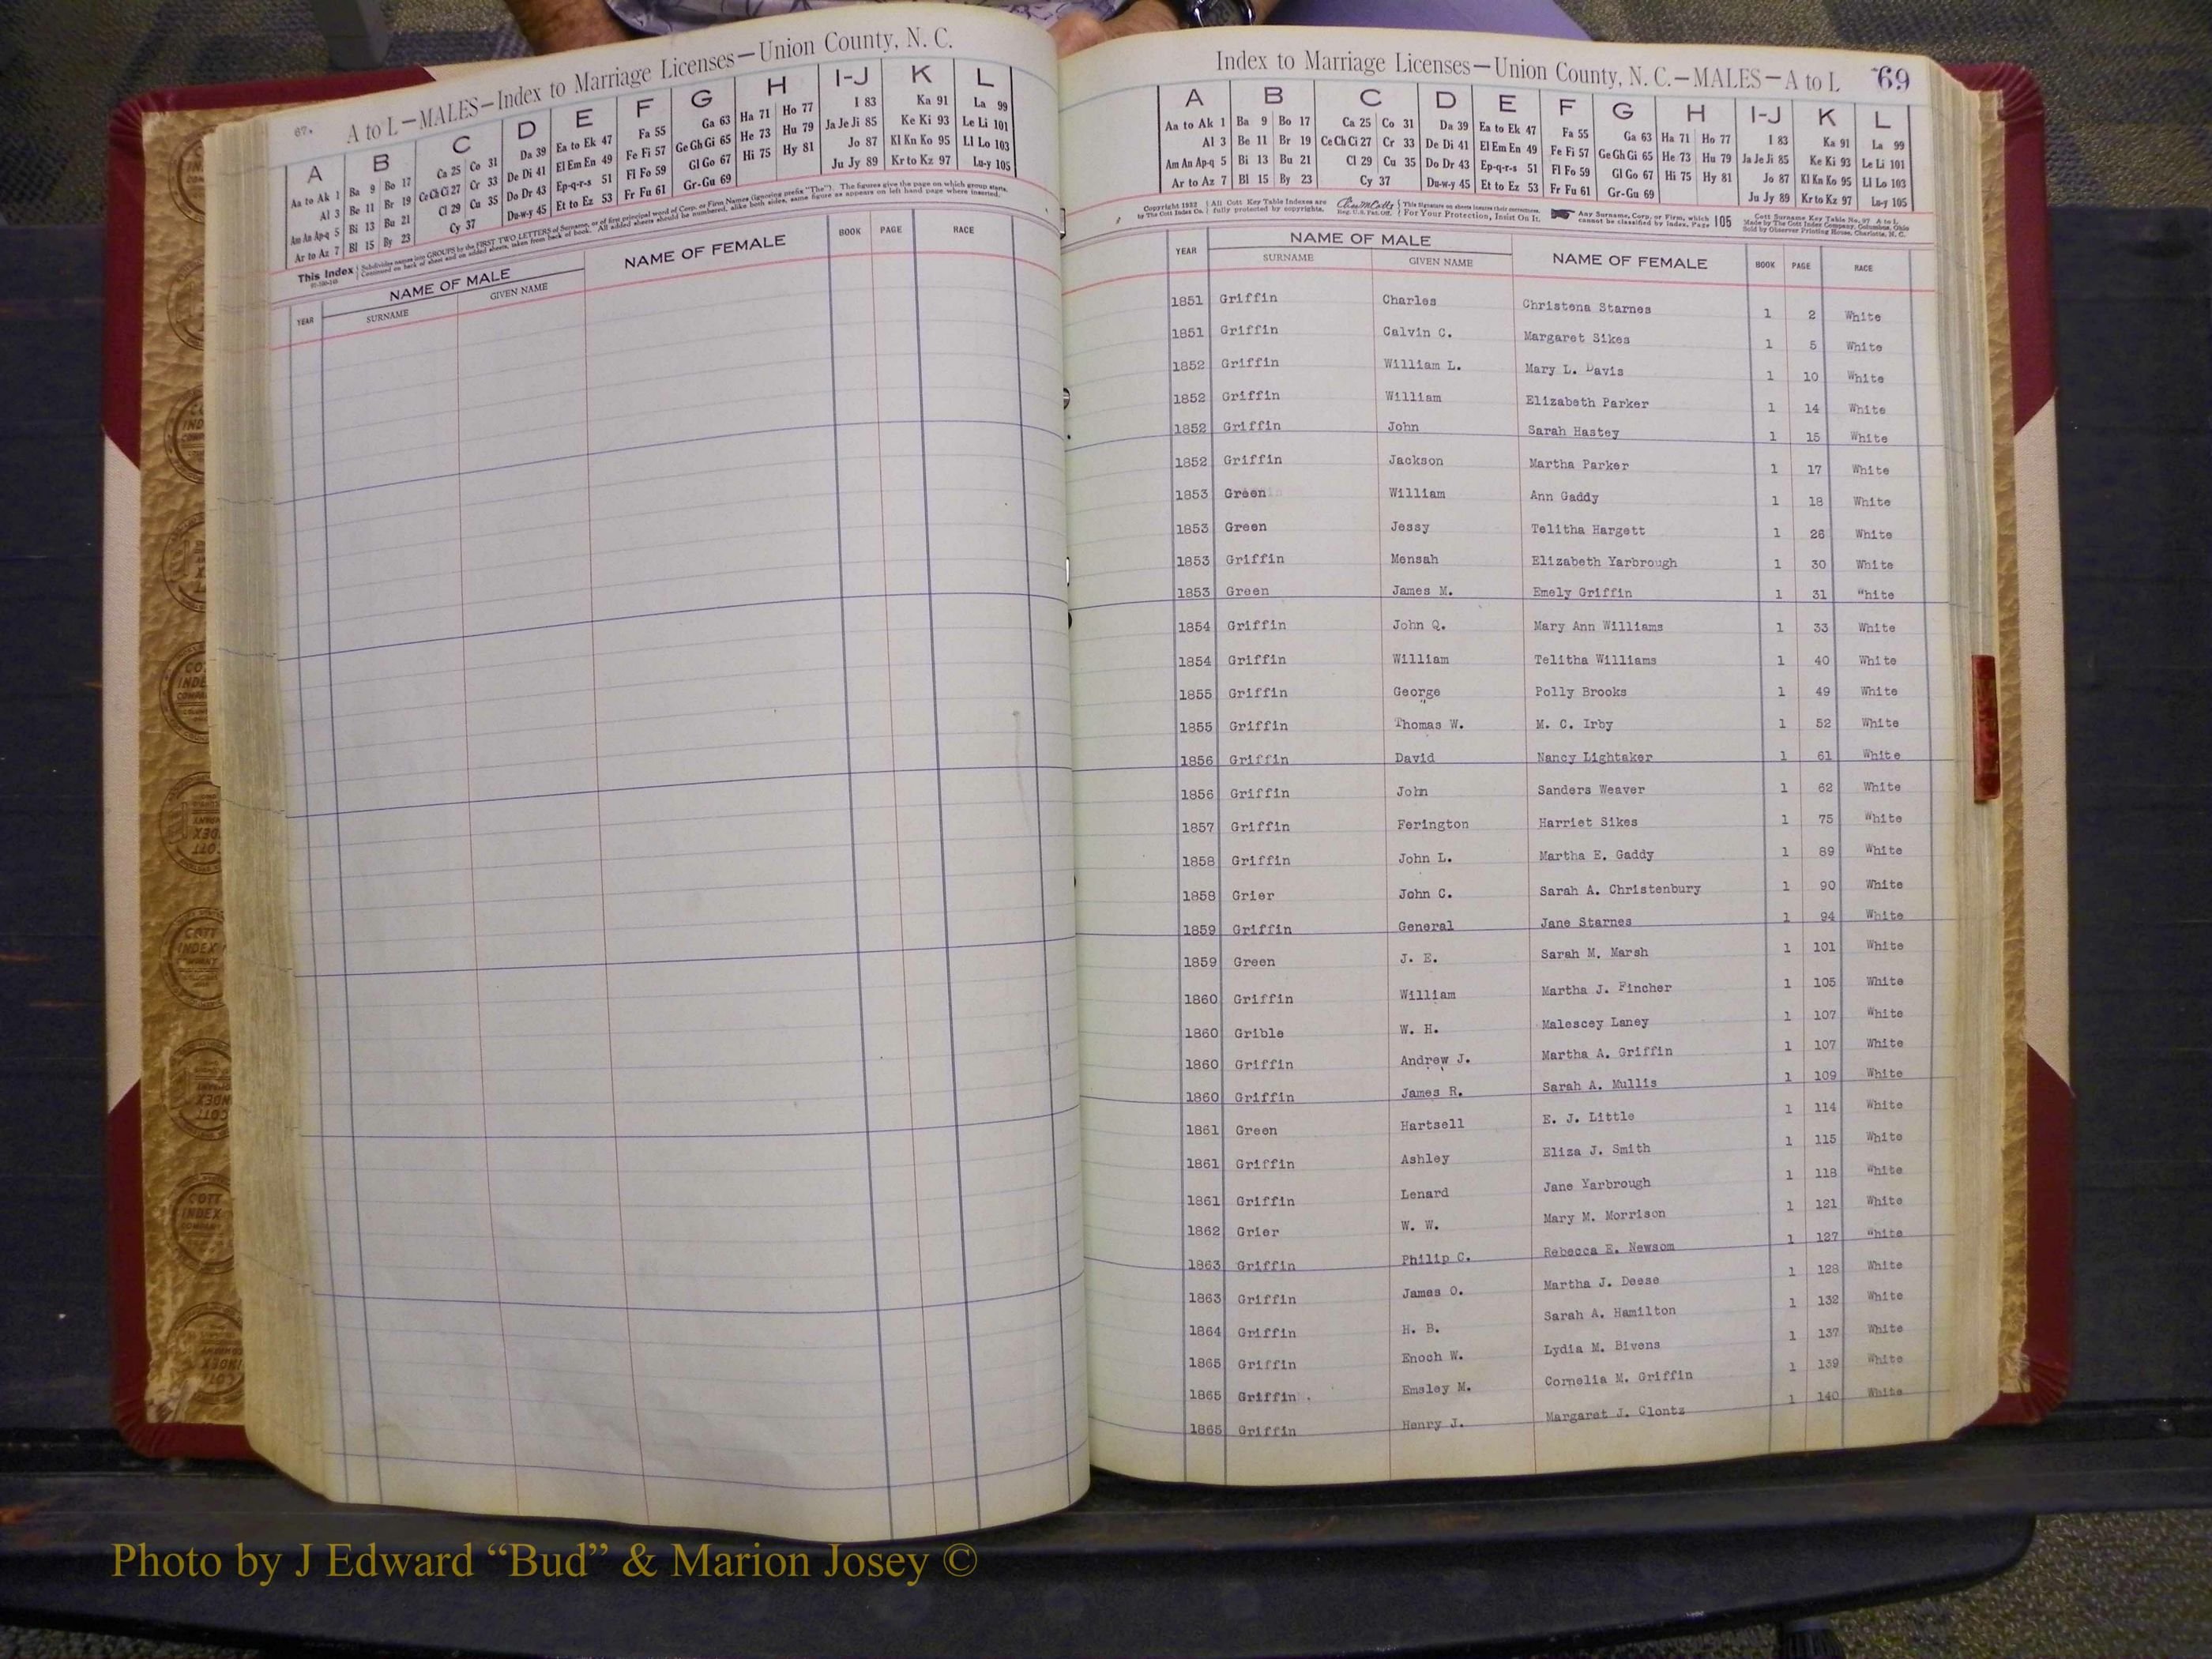 67.
A to L—MALES—Index to Marriage Licenses—Union County, N. C.
A B C D E F G H I-J K L
Aa to Ak 1 Ba 9 Bo 17 Ca 25 Co 31 Da 39 Ea to Ek 47 Fa 55 Ga 63 Ha 71 Ho 77 I 83 Ka 91 La 99
Al 3 Be 11 Br 19 Ce Ch Ci 27 Cr 33 De Di 41 El Em En 49 Fe Fi 57 Ge Gh Gi 65 He 73 Hu 79 Ja Je Ji 85 Ke Ki 93 Le Li 101
Am An Ap-q 5 Bi 13 Bu 21 Cl 29 Cu 35 Do Dr 43 Ep-q-r-s 51 Fl Fo 59 Gl Go 67 Hi 75 Hy 81 Jo 87 Kl Kn Ko 95 Ll Lo 103
Ar to Az 7 Bl 15 By 23 Cy 37 Du-w-y 45 Et to Ez 53 Fr Fu 61 Gr-Gu 69 Ju Jy 89 Kr to Kz 97 Lu-y 105
This Index
YEAR NAME OF MALE NAME OF FEMALE BOOK PAGE RACE
SURNAME GIVEN NAME
Index to Marriage Licenses—Union County, N. C.—MALES—A to L 69
A B C D E F G H I-J K L
Aa to Ak 1 Ba 9 Bo 17 Ca 25 Co 31 Da 39 Ea to Ek 47 Fa 55 Ga 63 Ha 71 Ho 77 I 83 Ka 91 La 99
Al 3 Be 11 Br 19 Ce Ch Ci 27 Cr 33 De Di 41 El Em En 49 Fe Fi 57 Ge Gh Gi 65 He 73 Hu 79 Ja Je Ji 85 Ke Ki 93 Le Li 101
Am An Ap-q 5 Bi 13 Bu 21 Cl 29 Cu 35 Do Dr 43 Ep-q-r-s 51 Fl Fo 59 Gl Go 67 Hi 75 Hy 81 Jo 87 Kl Kn Ko 95 Ll Lo 103
Ar to Az 7 Bl 15 By 23 Cy 37 Du-w-y 45 Et to Ez 53 Fr Fu 61 Gr-Gu 69 Ju Jy 89 Kr to Kz 97 Lu-y 105
Copyright 1932 All Cott Key Table Indexes are For Your Protection, Insist On It. Any Surname, Corp. or Firm, which
by The Cott Index Co. fully protected by copyrights. cannot be classified by Index, Page 105
YEAR NAME OF MALE NAME OF FEMALE BOOK PAGE RACE
SURNAME GIVEN NAME
1851 Griffin Charles Christena Starnes 1 2 White
1851 Griffin Calvin C. Margaret Sikes 1 5 White
1852 Griffin William L. Mary L. Davis 1 10 White
1852 Griffin William Elizabeth Parker 1 14 White
1852 Griffin John Sarah Hastey 1 15 White
1852 Griffin Jackson Martha Parker 1 17 White
1853 Green William Ann Gaddy 1 18 White
1853 Green Jessy Telitha Hargett 1 28 White
1853 Griffin Mensah Elizabeth Yarbrough 1 30 White
1853 Green James M. Emely Griffin 1 31 White
1854 Griffin John Q. Mary Ann Williams 1 33 White
1854 Griffin William Telitha Williams 1 40 White
1855 Griffin George Polly Brooks 1 49 White
1855 Griffin Thomas W. M. C. Irby 1 52 White
1856 Griffin David Nancy Lightaker 1 61 White
1856 Griffin John Sanders Weaver 1 62 White
1857 Griffin Ferington Harriet Sikes 1 75 White
1858 Griffin John L. Martha E. Gaddy 1 89 White
1858 Grier John C. Sarah A. Christenbury 1 90 White
1859 Griffin General Jane Starnes 1 94 White
1859 Green J. E. Sarah M. Marsh 1 101 White
1860 Griffin William Martha J. Fincher 1 105 White
1860 Grible W. H. Malescey Laney 1 107 White
1860 Griffin Andrew J. Martha A. Griffin 1 107 White
1860 Griffin James R. Sarah A. Mullis 1 109 White
1861 Green Hartsell E. J. Little 1 114 White
1861 Griffin Ashley Eliza J. Smith 1 115 White
1861 Griffin Lenard Jane Yarbrough 1 118 White
1862 Grier W. W. Mary M. Morrison 1 121 White
1863 Griffin Philip C. Rebecca E. Newsom 1 127 White
1863 Griffin James O. Martha J. Deese 1 128 White
1864 Griffin H. B. Sarah A. Hamilton 1 132 White
1865 Griffin Enoch W. Lydia M. Bivens 1 137 White
1865 Griffin Emsley M. Cornelia M. Griffin 1 139 White
1865 Griffin Henry J. Margaret J. Clontz 1 140 White
Photo by J Edward “Bud” & Marion Josey ©